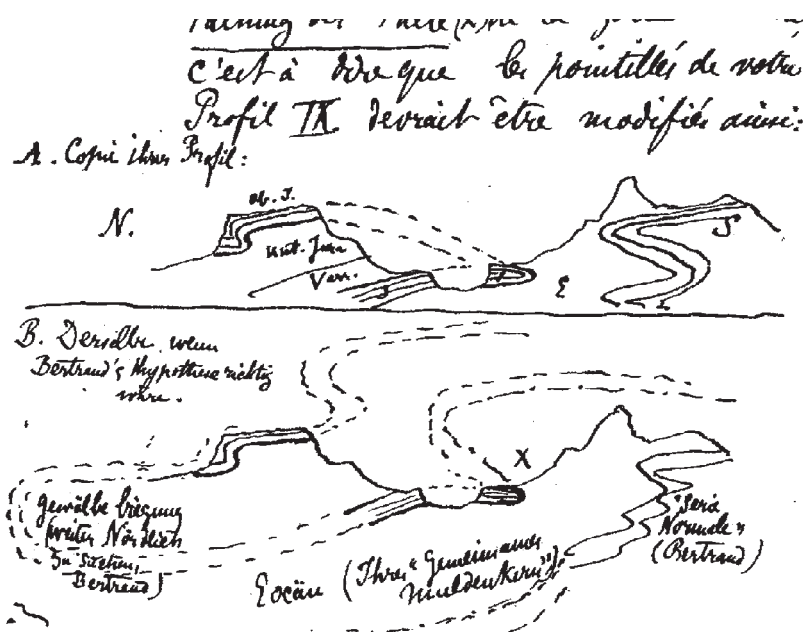 c'est à dire que les pointillés de votre
Profil IX devrait être modifiés ainsi:
A. Copie ihres Profil:
N.
ob. J.
unt. Jura
Verr.
J
E
S
B. Derselbe, wenn
Bertrand's Hypothese richtig
wäre.
X
Gewölbebiegung
weiter Nördlich
zu suchen,
Bertrand)
Eocän (Ihres "Gemeinsames
Muldenkern")
"Serie
Normale"
(Bertrand)